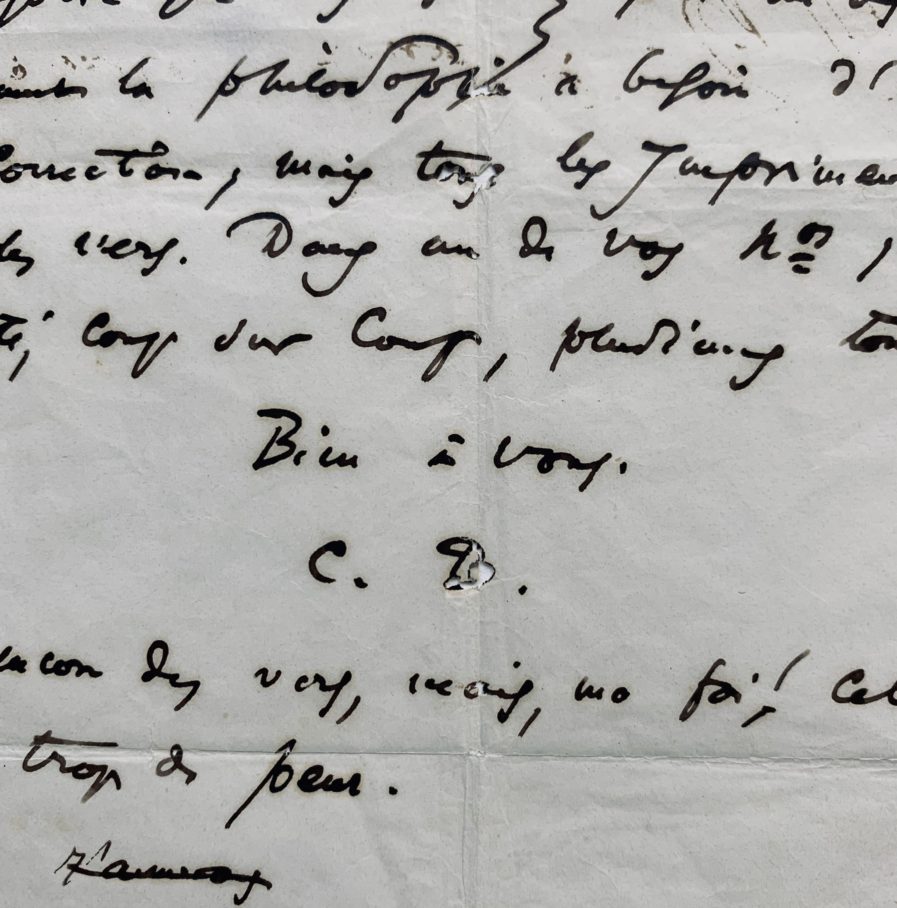 la philosophie a besoin d'
Correction, mais tous les Imprimeu
des vers. Dans un de vos Nos,
té, coup sur Coup, plusieurs
Bien à vous.
C. B.
encor des vers, mais, ma foi! Cel
trop de peur.